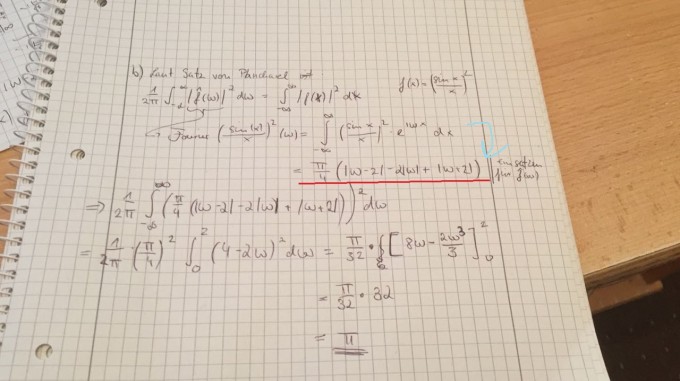 b) Laut Satz von Plancherel ist
1/2π ∫_{-∞}^{∞} |f̂(ω)|² dω = ∫_{-∞}^{∞} |f(x)|² dx    f(x) = (sin x / x)²
→ Fourier (sin(x)/x)² (ω) = ∫_{-∞}^{∞} (sin x / x)² · e^{iωx} dx
= π/4 (|ω-2| - 2|ω| + |ω+2|)    einsetzen
für f̂(ω)
⇒ 1/2π ∫_{-∞}^{∞} (π/4 (|ω-2| - 2|ω| + |ω+2|))² dω
= 1/2π · (π/4)² ∫_0^2 (4-2ω)² dω = π/32 · [8ω - 2ω³/3]_0^2
= π/32 · 32
= π